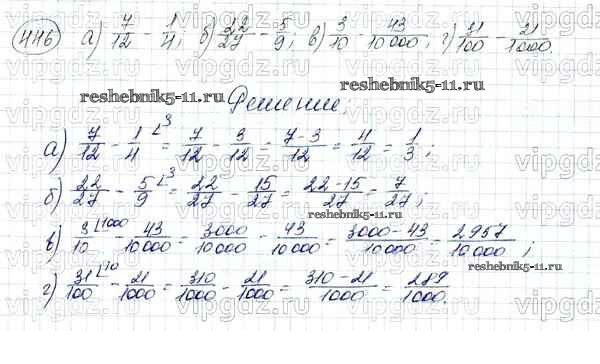 446 а) 7/12 - 1/4; б) 22/27 - 5/9; в) 3/10 - 43/10000; г) 31/100 - 21/1000.
reshebnik5-11.ru
reshebnik5-11.ru
Решение.
а) 7/12 - 1/4 ∟3 = 7/12 - 3/12 = 7-3/12 = 4/12 = 1/3;
б) 22/27 - 5/9 ∟3 = 22/27 - 15/27 = 22-15/27 = 7/27;
reshebnik5-11.ru
в) 3/10 ∟1000 - 43/10000 = 3000/10000 - 43/10000 = 3000-43/10000 = 2957/10000;
reshebnik5-11.ru
г) 31/100 ∟10 - 21/1000 = 310/1000 - 21/1000 = 310-21/1000 = 289/1000.
vipgdz.ru